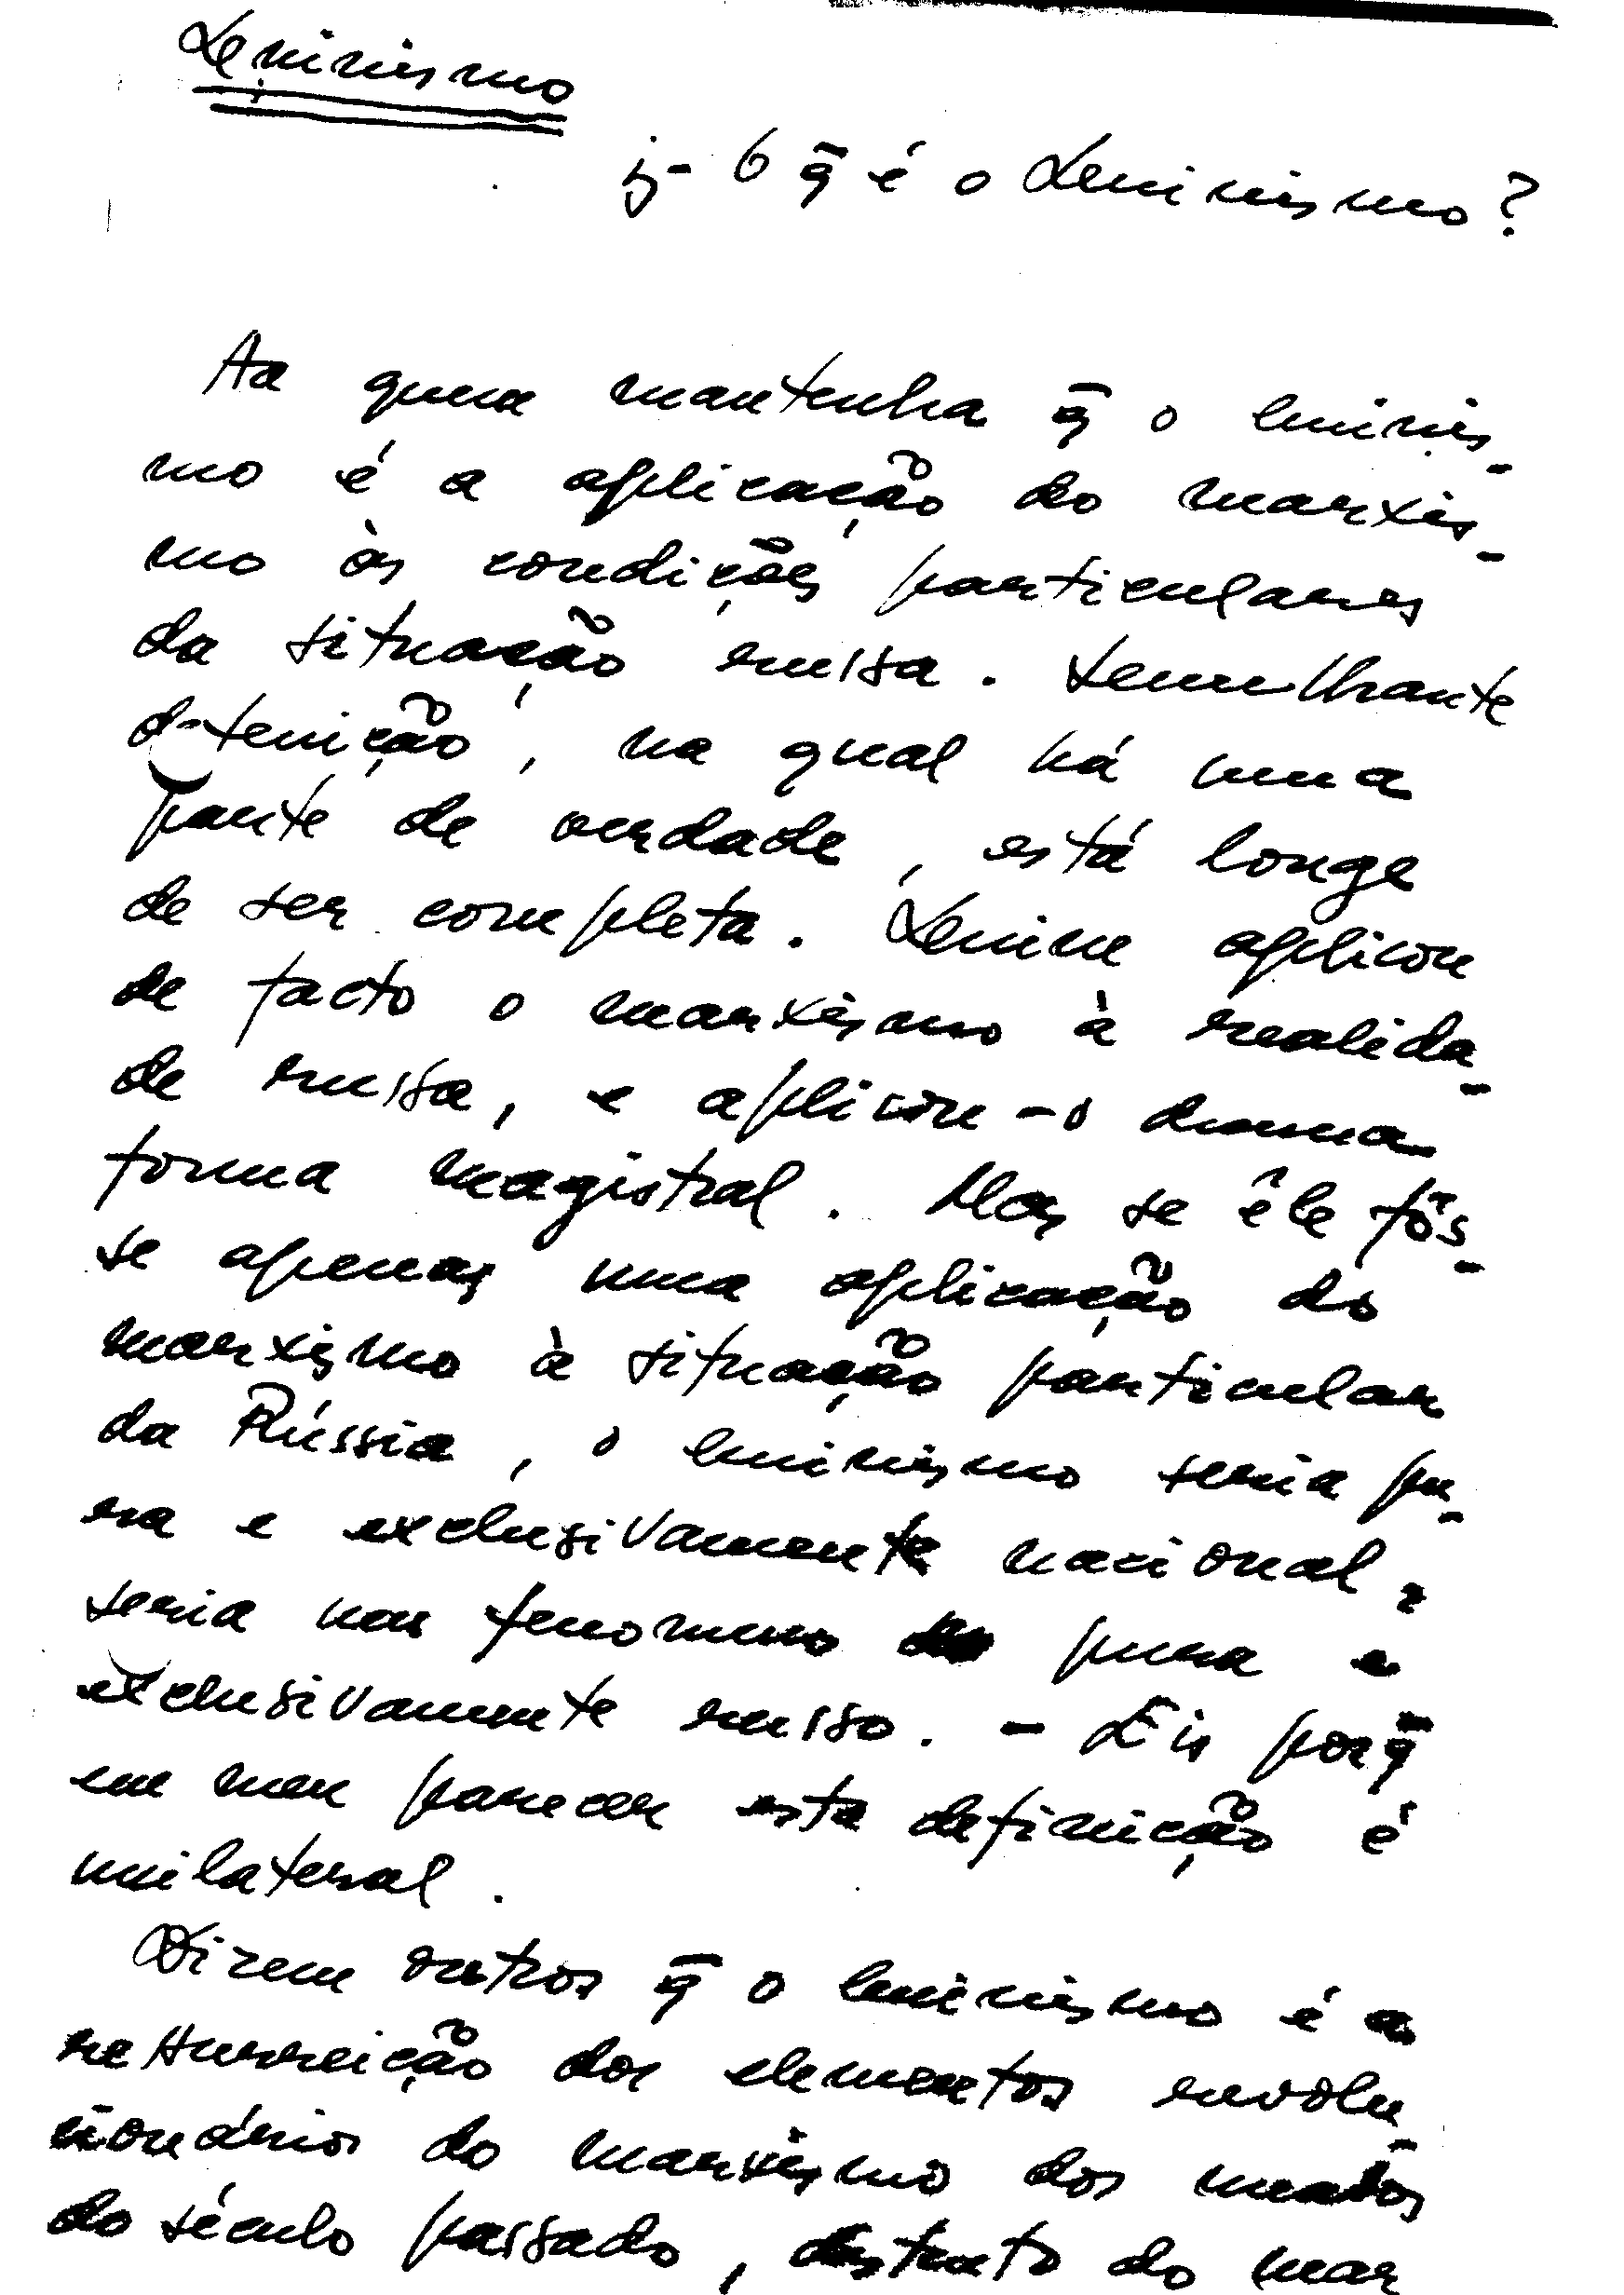 Leninismo
j- O q̃ é o Leninismo?
Ha quem mantenha q̃ o leninis-
mo é a aplicação do marxis-
mo às condições particulares
da situação russa. Semelhante
definição, na qual há uma
parte de verdade, está longe
de ser completa. Lenine aplicou
de facto o marxismo à realida-
de russa, e aplicou-o duma
forma magistral. Mas se êle fôs-
se apenas uma aplicação do
marxismo à situação particular
da Rússia, o leninismo seria pu-
ra e exclusivamente nacional,
seria um fenomeno pura e
exclusivamente russo. - Eis porq̃
em meu parecer esta definição é
unilateral.
Dizem outros q̃ o leninismo é a
ressurreição dos elementos revolu-
cionários do marxismo dos meados
do século passado, distinto do mar